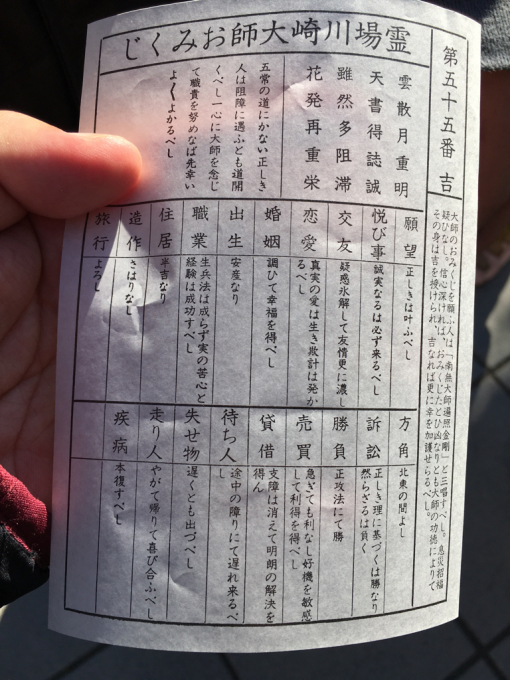 霊場川崎大師おみくじ
第五十五番 吉
大師のおみくじを願ふ人は「南無大師遍照金剛」と三唱すべし。息災招福
疑ひなし。信心深ければ、おみくじたとひ凶なりとも大師の功徳によりて
その身は吉を授けられ、吉なれば更に幸を加護せらるべし。
雲散月重明
天書得誌誠
雖然多阻滞
花発再重栄
五常の道にかない正しき
人は阻障に遇ふとも道開
くべし一心に大師を念じ
て職責を努めなば先幸い
よくよかるべし
願望 正しきは叶ふべし
悦び事 誠実なるは必ず来るべし
交友 疑惑氷解して友情更に濃し
恋愛 真実の愛は生き欺計は発か
るべし
婚姻 調ひて幸福を得べし
出生 安産なり
職業 生兵法は成らず実の苦心と
経験は成功すべし
住居 半吉なり
造作 さはりなし
旅行 よろし
方角 北東の間よし
訴訟 正しき理に基づくは勝なり
然らざるは負く
勝負 正攻法にて勝
売買 急ぎても利なし好機を敏感
して利得を得べし
貸借 支障は消えて明朗の解決を
得ん
待ち人 途中の障りにて遅れ来るべ
し
失せ物 遅くとも出づべし
走り人 やがて帰りて喜び合ふべし
疾病 本復すべし